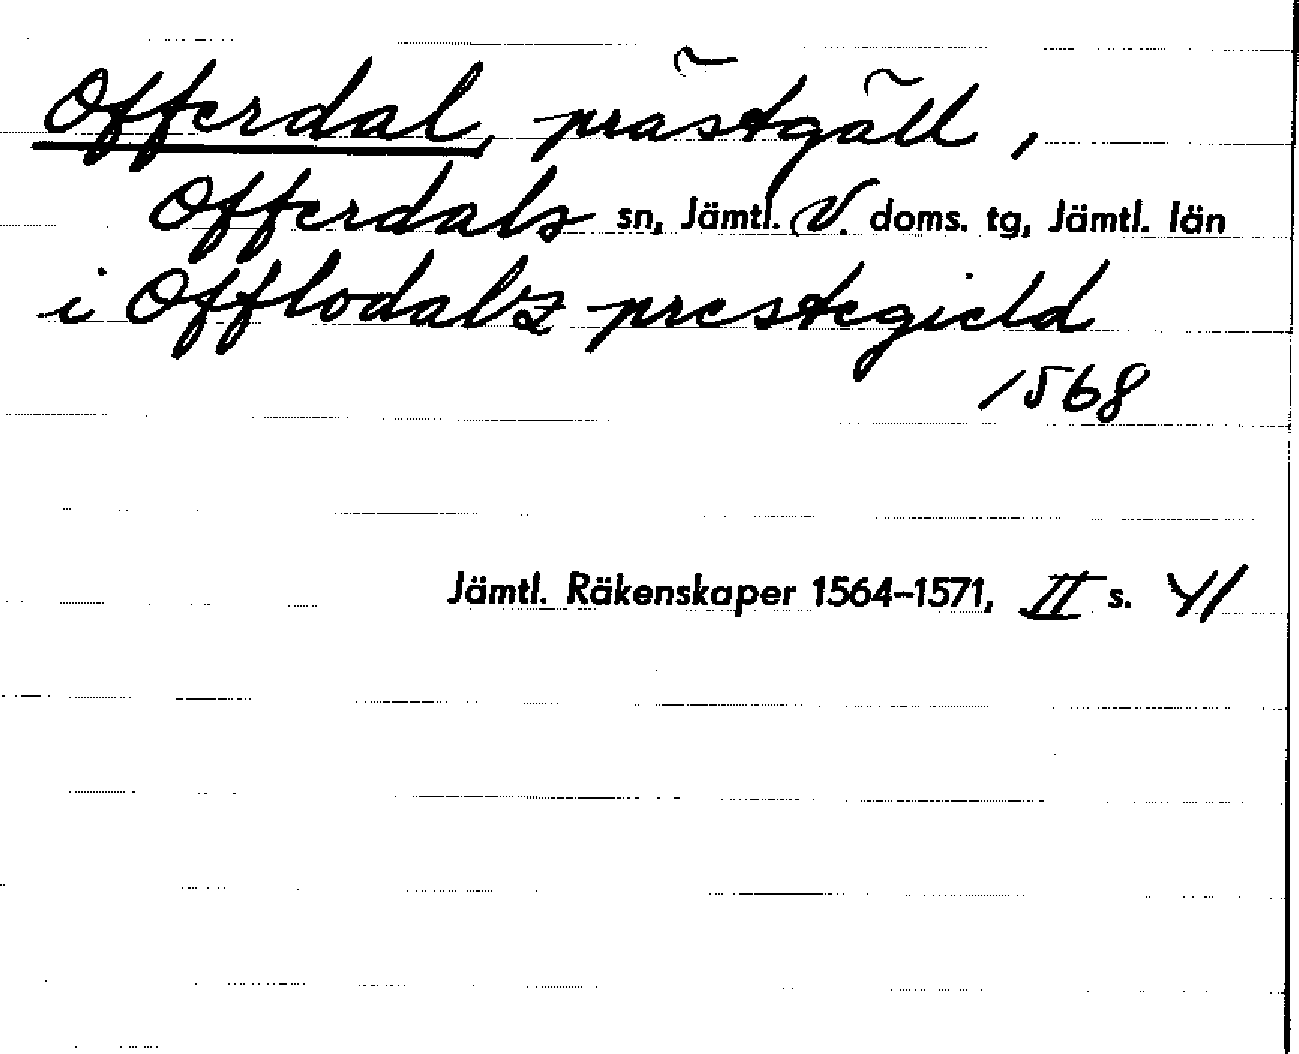 Offerdal, prästgäll,
Offerdals sn, Jämtl. V. doms. tg, Jämtl. län
i Offlodalz prestegield
1568
Jämtl. Räkenskaper 1564–1571, II s. 41